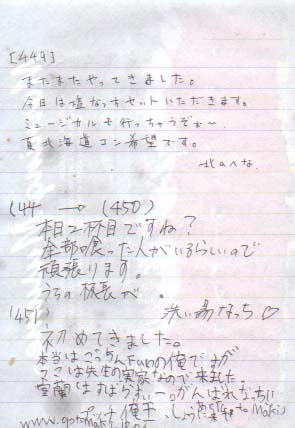 [449]
またまたやってきました。
今日は塩なっちセットいただきます。
ミュージカルも行っちゃうぞぉ〜
夏北海道コン希望です。
北のへな
(44 → (450)
本日2杯目ですね?
全部喰った人がいるらしいので
頑張ります。
うちの杯長が 。
洗い場なっち♡
(451)
初めてきました。
本当はごっちんFunの俺ですが
ここは先生の実家なので来ました
室蘭はすばらすぃー。がんばれなっちに
www.gotomaki.